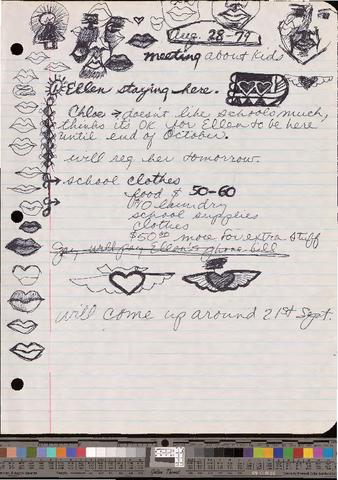 Aug. 28-79
meeting about Kids
Ellen staying here.
Chloe → doesn't like schools much,
thinks its OK for Ellen to be here
until end of October.
will reg her tomorrow.
→ school clothes
food $ 50-60
laundry
school supplies
clothes
$50.00 more for extra stuff
Gay will pay Ellen's phone bill
will come up around 21st Sept.